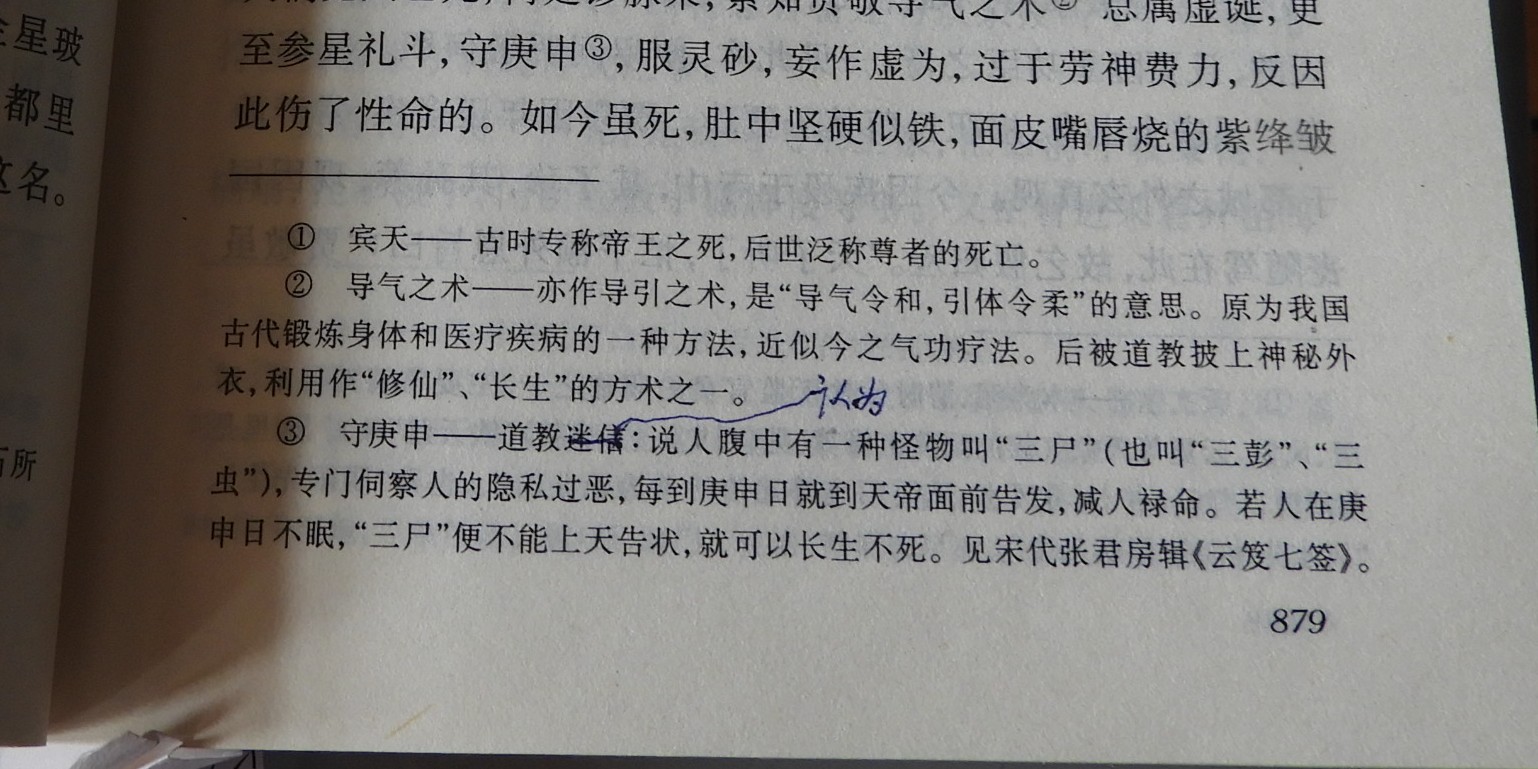 至参星礼斗,守庚申③,服灵砂,妄作虚为,过于劳神费力,反因
此伤了性命的。如今虽死,肚中坚硬似铁,面皮嘴唇烧的紫绛皱
① 宾天——古时专称帝王之死,后世泛称尊者的死亡。
② 导气之术——亦作导引之术,是“导气令和,引体令柔”的意思。原为我国
古代锻炼身体和医疗疾病的一种方法,近似今之气功疗法。后被道教披上神秘外
衣,利用作“修仙”、“长生”的方术之一。
认为
③ 守庚申——道教迷信:说人腹中有一种怪物叫“三尸”(也叫“三彭”、“三
虫”),专门伺察人的隐私过恶,每到庚申日就到天帝面前告发,减人禄命。若人在庚
申日不眠,“三尸”便不能上天告状,就可以长生不死。见宋代张君房辑《云笈七签》。
879
星玻
都里
这名。
所